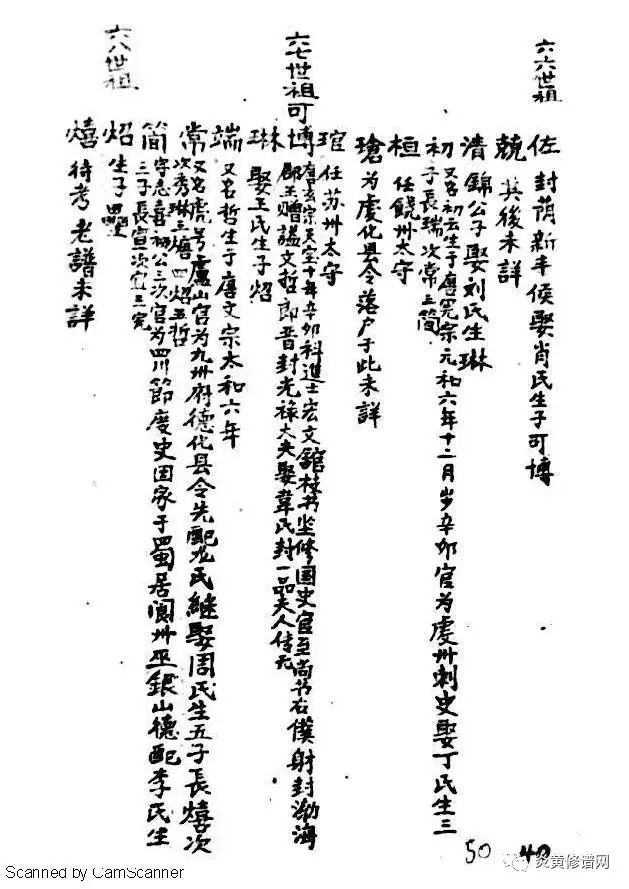 六六世祖
佐 封荫新丰侯娶肖氏生子可博
兢 其後未詳
清 錦公子娶刘氏生琳
初 又名初云生于唐宪宗元和六年十二月岁辛卯官为虔州刺史娶丁氏生三
子長瑞次常三简
桓 任饶州太守
瑲 为虔化县令落户于此未詳
瑄 任苏州太守
六七世祖可博 唐玄宗天宝十年辛卯科進士宏文舘校书坐修国史官至尚书右僕射封渤海
郡王赠谥文哲郎晋封光禄大夫娶韋氏封一品夫人传无
琳 娶王氏生子炤
端 又名哲生于唐文宗太和六年
常 又名虎号盧山官为九州府德化县令先配尤氏继娶周氏生五子長熺次
次秀琳三熺四炤五哲
简 守志喜初公三次官为四川節度史因家于蜀居阆州巫銀山德配李氏生
三子長宣次宜三宪
六八世祖
炤 生子
熺 待考老譜未詳
50 40
炎黄修谱网
Scanned by CamScanner